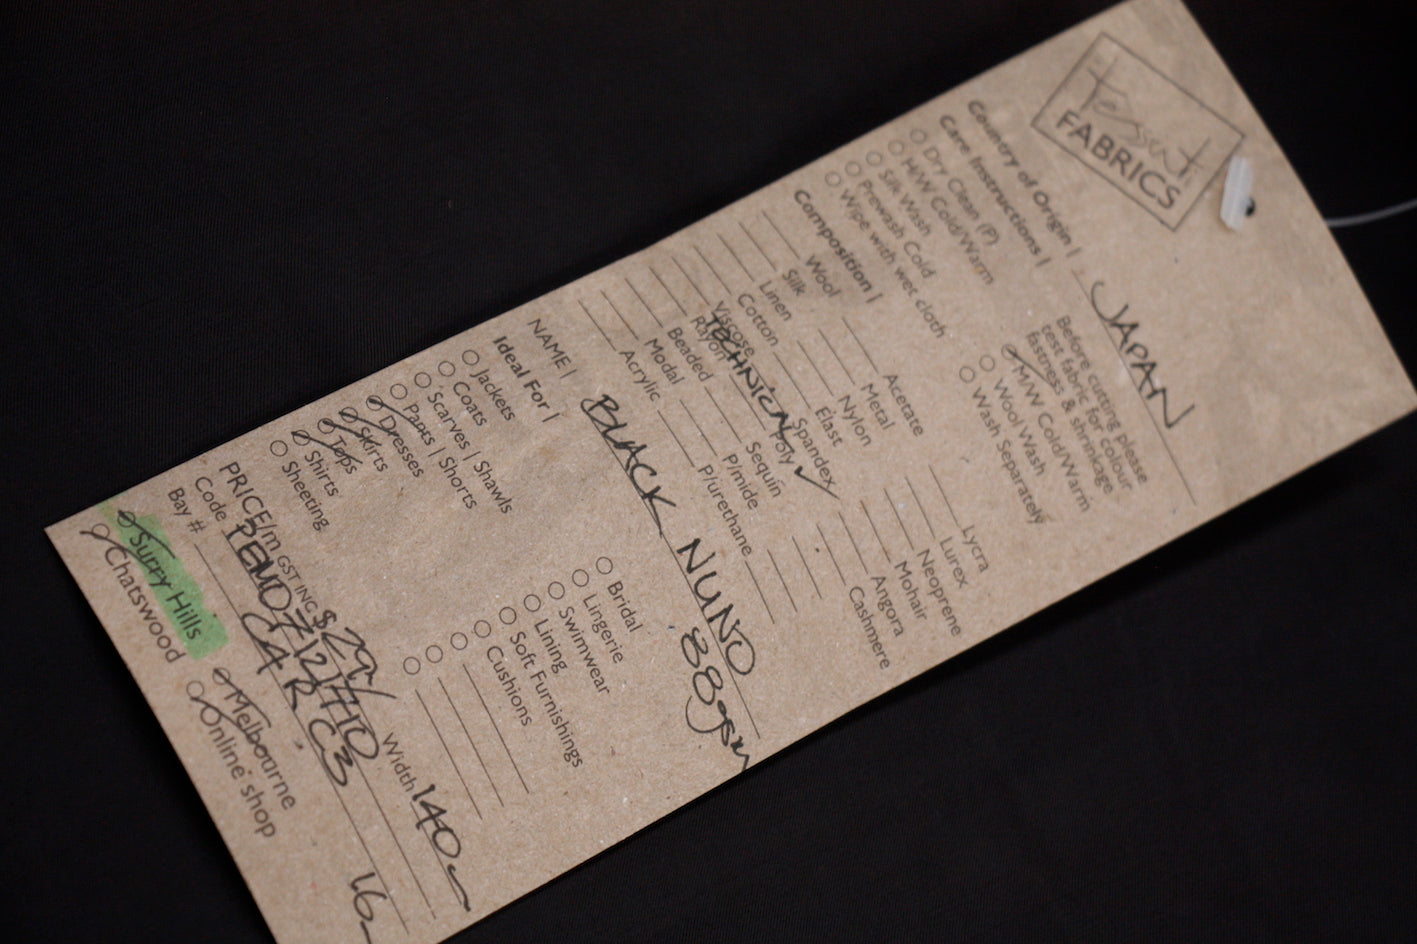 Tessuti
FABRICS
Country of Origin | JAPAN
Care Instructions |
Before cutting please
test fabric for colour
fastness & shrinkage
Dry Clean (P)
H/W Cold/Warm
Silk Wash
Prewash Cold
Wipe with wet cloth
M/W Cold/Warm
Wool Wash
Wash Separately
Composition |
Wool
Silk
Linen
Cotton
Viscose
Rayon
Beaded
Modal
Acrylic
Acetate
Metal
Nylon
Elast
Spandex
Poly ✓
TECHNICAL
Sequin
P/mide
P/urethane
Lycra
Lurex
Neoprene
Mohair
Angora
Cashmere
NAME | BLACK NUNO
88gsm
Ideal For |
Jackets
Coats
Scarves | Shawls
Pants | Shorts
Dresses
Skirts
Tops
Shirts
Sheeting
Bridal
Lingerie
Swimwear
Lining
Soft Furnishings
Cushions
PRICE/m GST INC $29/ Width 140
Code
Bay # C4 R C3 16
Surry Hills
Chatswood
Melbourne
Online shop